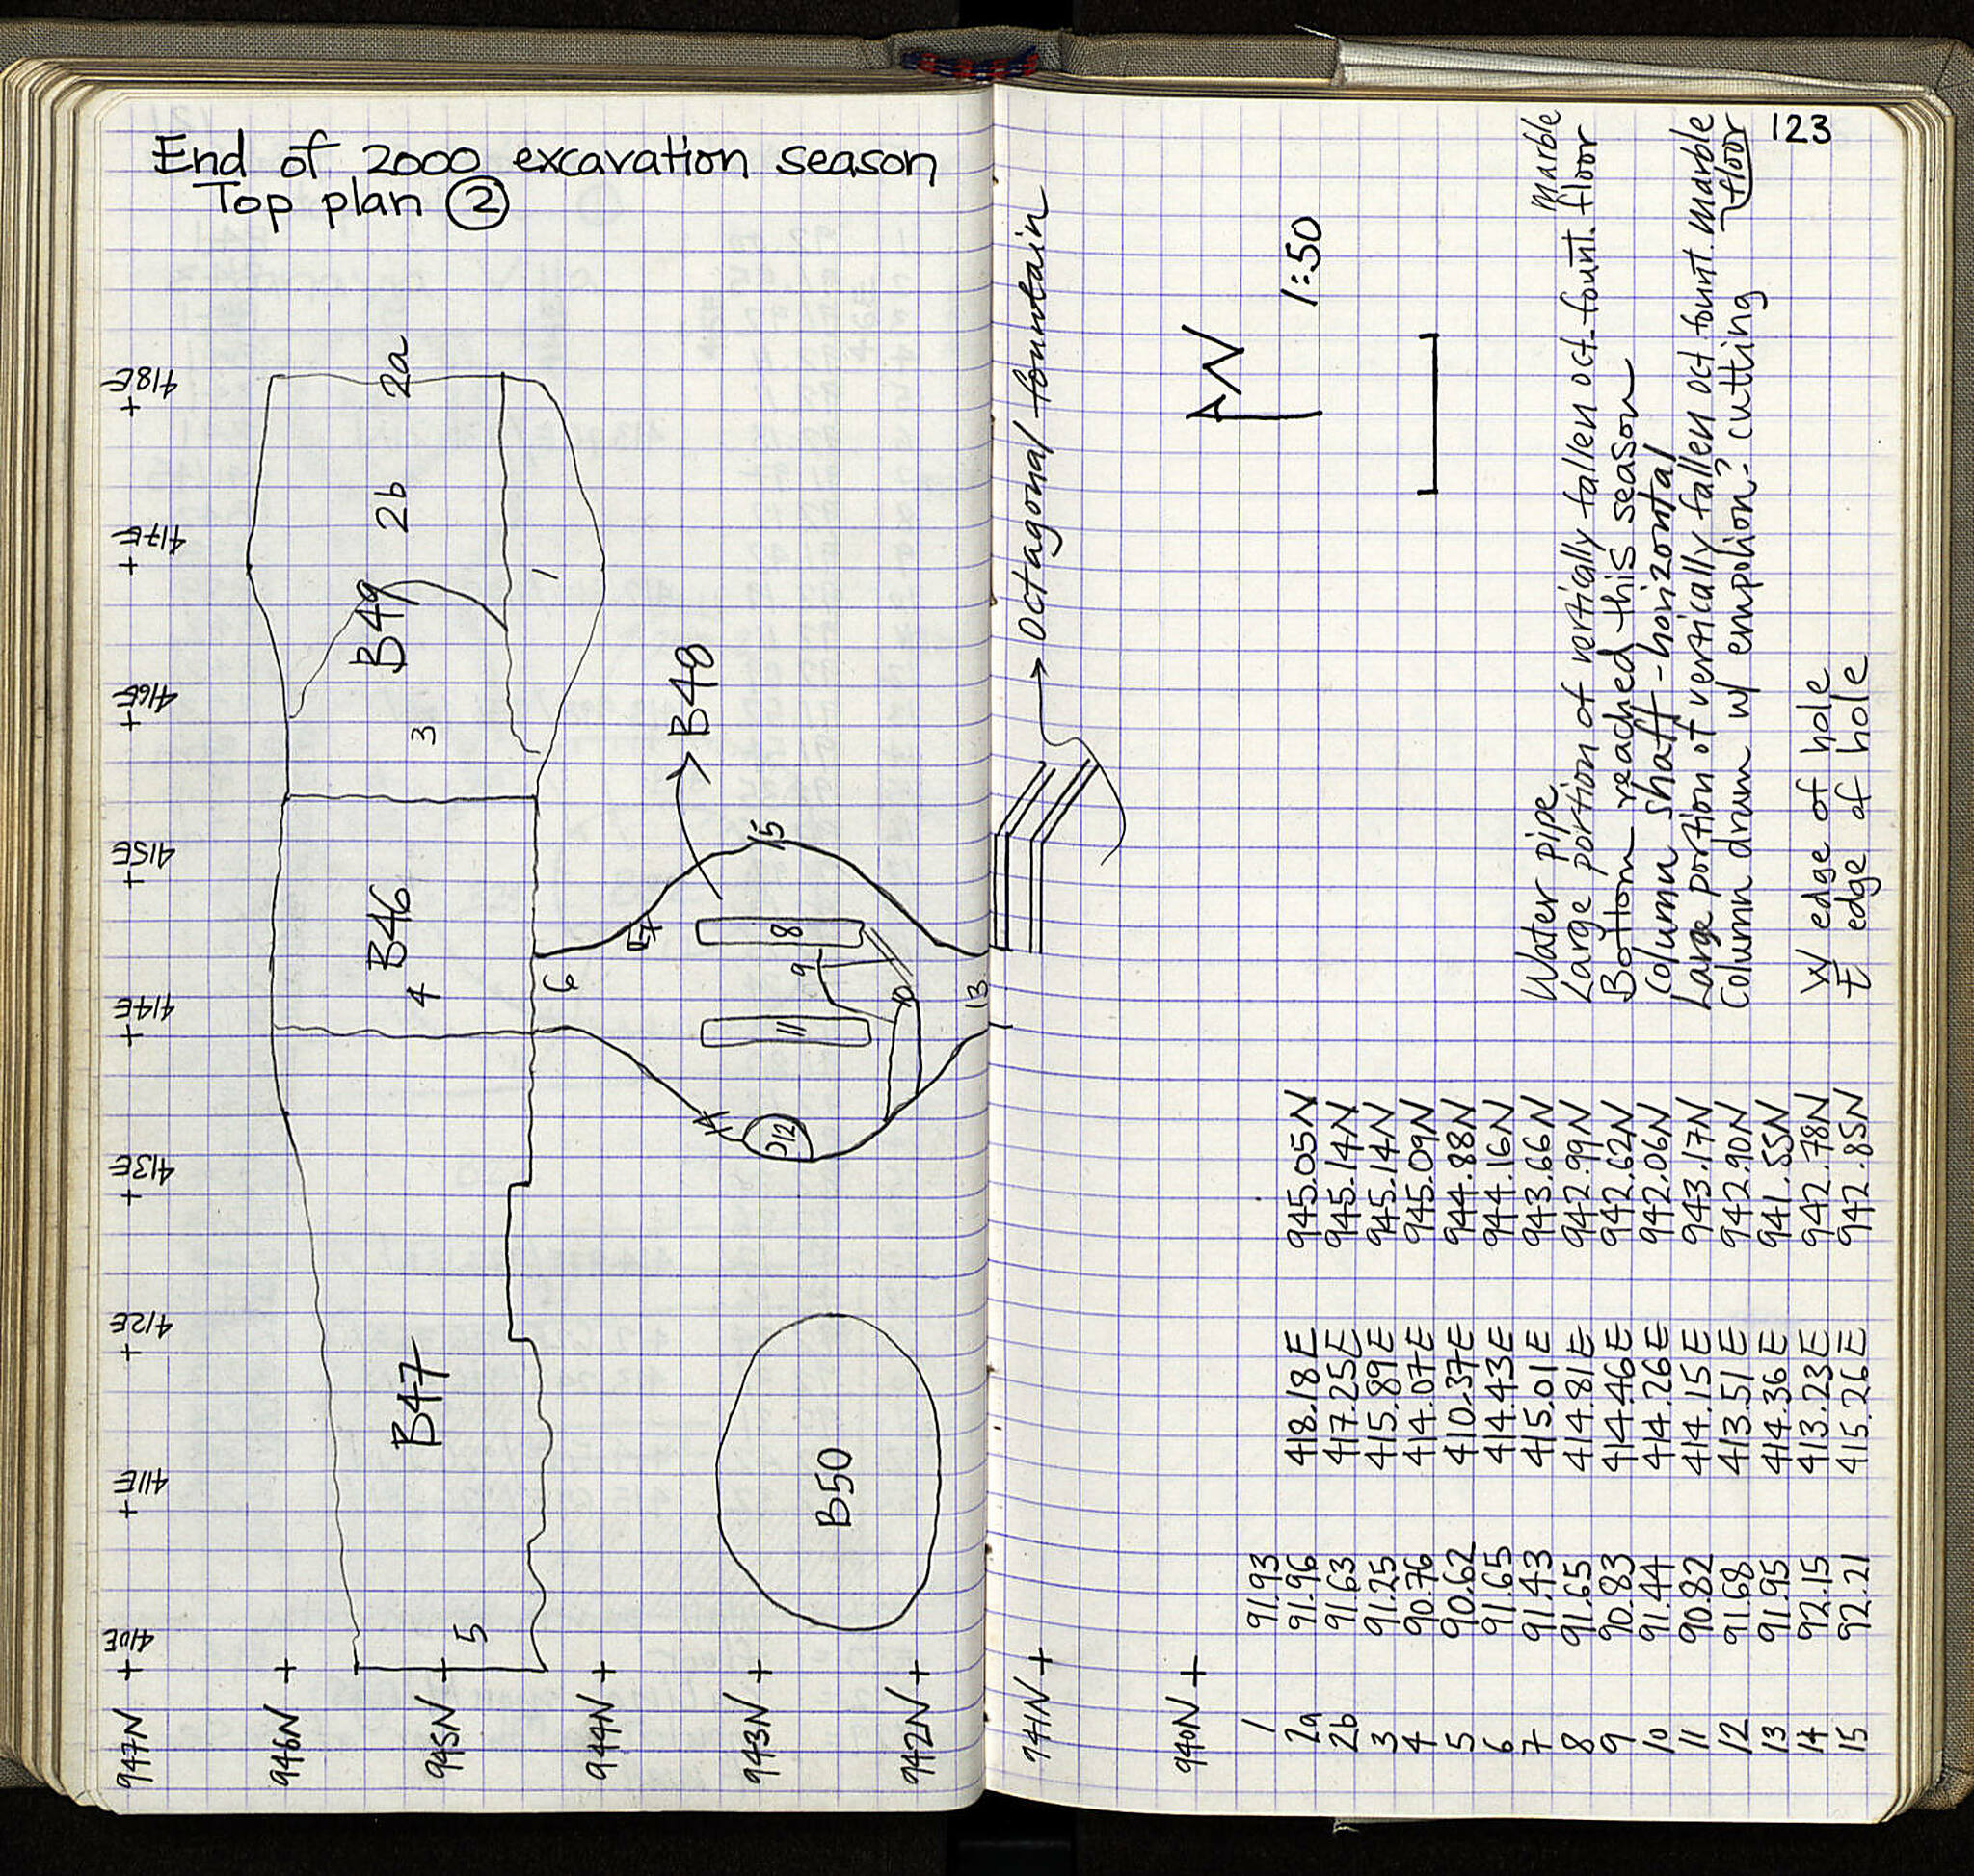 End of 2000 excavation season
Top plan ②
123
947N
946N
945N
944N
943N
942N
941N
940N
410E
411E
412E
413E
414E
415E
416E
417E
418E
B47
5
B46
4
B49
3
2b
2a
1
B50
B48
6
7
8
9
10
11
12
13
14
15
→ Octagonal fountain
N
1:50
1 91.93
2a 91.96 418.18E 945.05N
2b 91.63 417.25E 945.14N
3 91.25 415.89E 945.14N
4 90.76 414.07E 945.09N
5 90.62 410.37E 944.88N
6 91.65 414.43E 944.16N
7 91.43 415.01E 943.66N Water pipe
8 91.65 414.81E 942.99N Large portion of vertically fallen oct. fount. marble floor
9 90.83 414.46E 942.62N Bottom reached this season
10 91.44 414.26E 942.06N Column shaft - horizontal
11 90.82 414.15E 943.17N Large portion of vertically fallen oct fount. marble floor
12 91.68 413.51E 942.90N Column drum w/ empolion? cutting
13 91.95 414.36E 941.55N
14 92.15 413.23E 942.78N W edge of hole
15 92.21 415.26E 942.85N E edge of hole